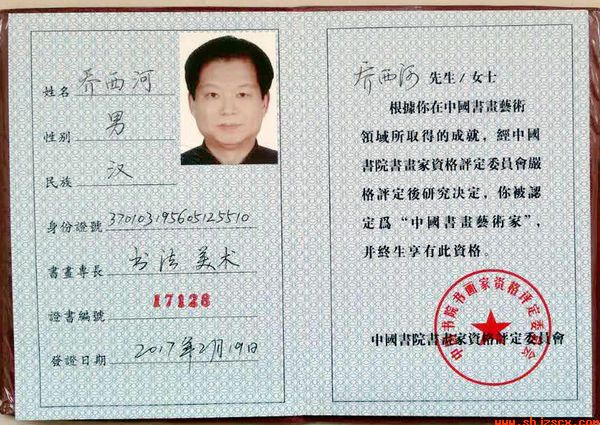 姓名 乔西河
性别 男
民族 汉
身份證號 370103195605125510
書畫專長 书法 美术
證書編號 17128
發證日期 2017年2月19日
乔西河 先生/女士
根據你在中國書畫藝術
領域所取得的成就，經中國
書院書畫家資格評定委員會嚴
格評定後研究决定，你被認
定爲“中國書畫藝術家”，
并終生享有此資格。
中國書院書畫家資格評定委員會
中国书院书画家资格评定委员会
www.shjzscx.com